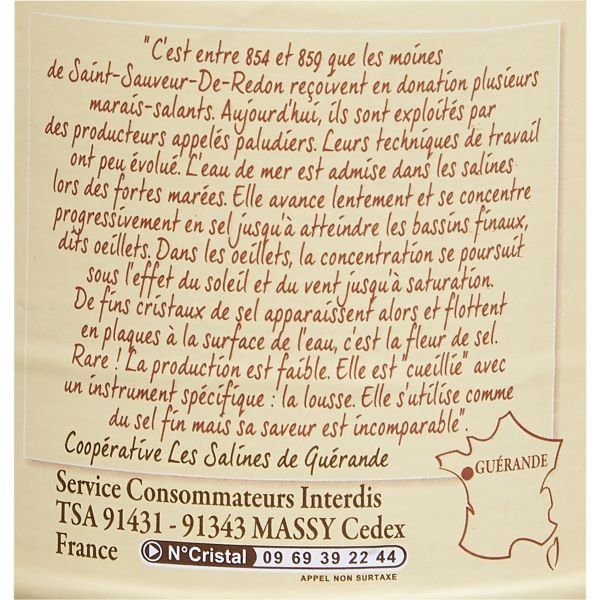 "C'est entre 854 et 859 que les moines
de Saint-Sauveur-De-Redon reçoivent en donation plusieurs
marais-salants. Aujourd'hui, ils sont exploités par
des producteurs appelés paludiers. Leurs techniques de travail
ont peu évolué. L'eau de mer est admise dans les salines
lors des fortes marées. Elle avance lentement et se concentre
progressivement en sel jusqu'à atteindre les bassins finaux,
dits oeillets. Dans les oeillets, la concentration se poursuit
sous l'effet du soleil et du vent jusqu'à saturation.
De fins cristaux de sel apparaissent alors et flottent
en plaques à la surface de l'eau, c'est la fleur de sel.
Rare ! La production est faible. Elle est "cueillie" avec
un instrument spécifique : la lousse. Elle s'utilise comme
du sel fin mais sa saveur est incomparable".
Coopérative Les Salines de Guérande
GUÉRANDE
Service Consommateurs Interdis
TSA 91431 - 91343 MASSY Cedex
France
N°Cristal 09 69 39 22 44
APPEL NON SURTAXE